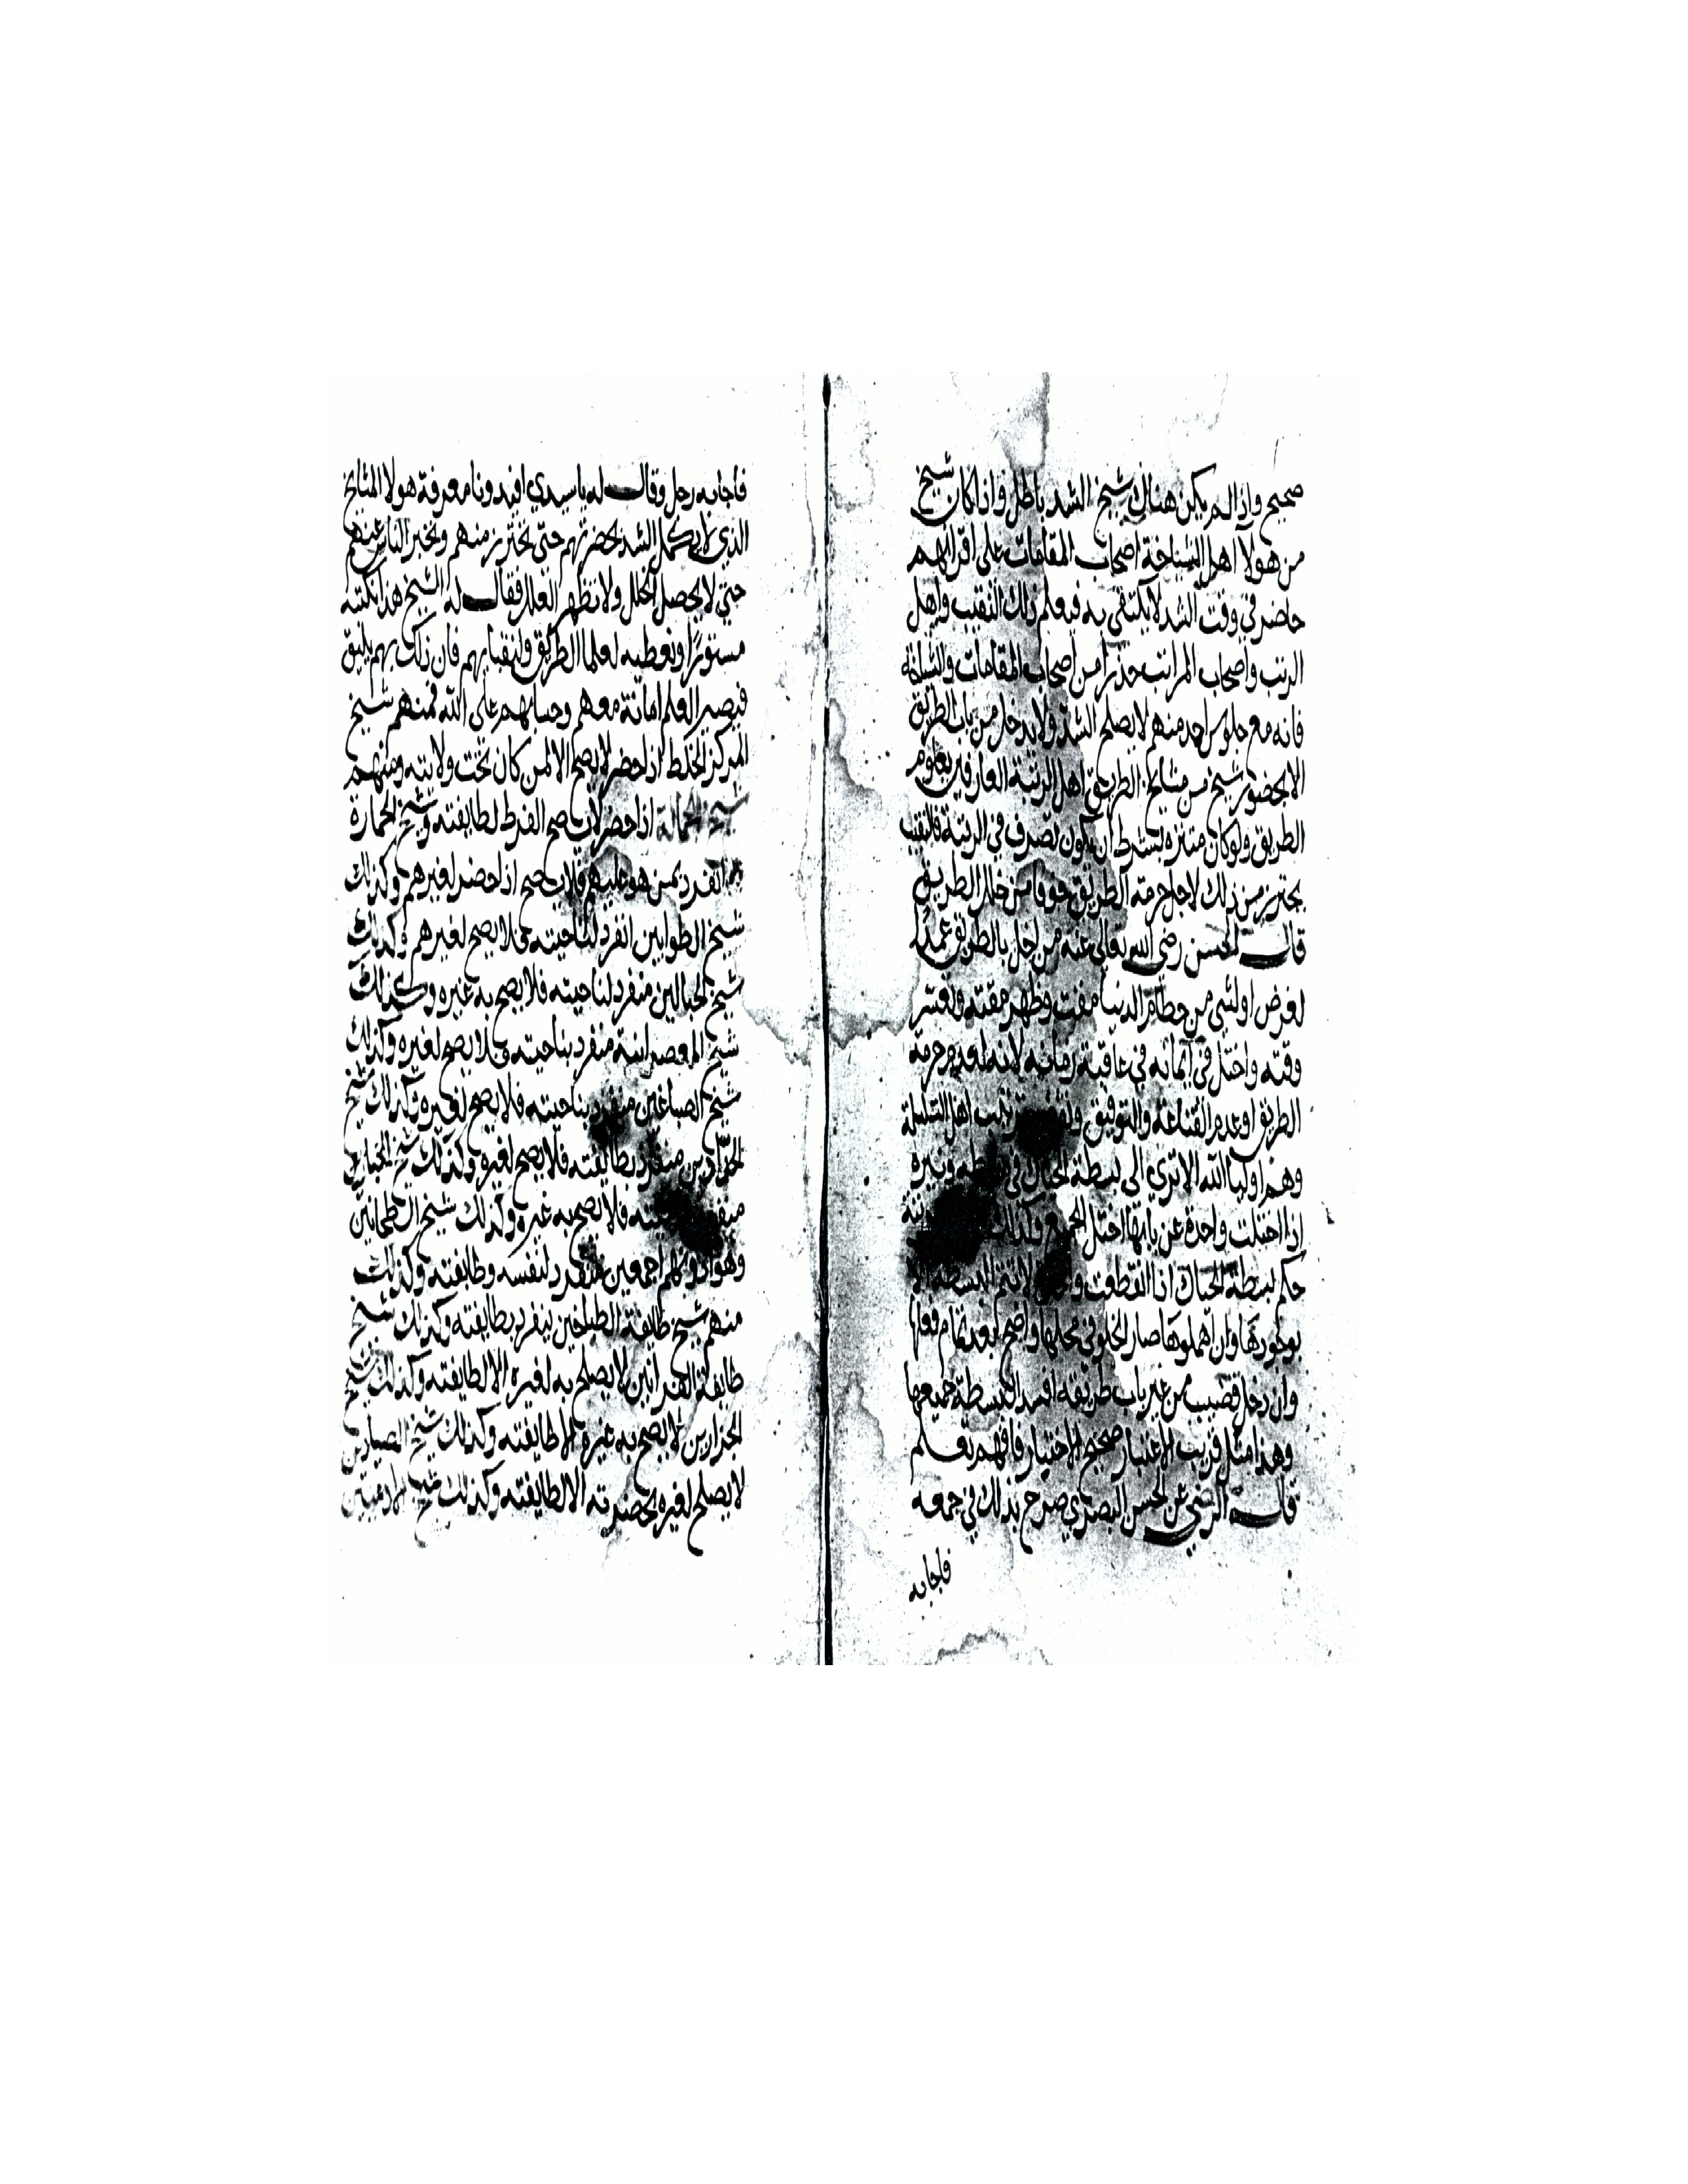 صحيح واذا لم يكن هناك شيخ الشد باطل واذا كان شيخ
من هولآ اهل الشياخة اصحاب المقامات على اقرانهم
حاضر في وقت الشد لا يكتفى به فيعلم ذلك النقيب واهل
الرتب واصحاب المراتب حذرا من اصحاب المقامات والشياخة
فانه مع جلوس احد منهم لا يصلح الشد ولا يدخل من باب الطريق
الا بحضور شيخ من مشايخ الطريق اهل الرتبة العارفين بعلوم
الطريق ولو كان متنزه بشرط ان يكون تصرف في الرتبة فالنقيب
يحترز من ذلك لاجل حرمة الطريق خوفا من خلل الطريق
قال الحسن رضي الله تعالى عنه من اخل بالطريق عمدا
لغرض او لشي من حطام الدنيا مقت وظهر مقته وتعسر
وقته واختل في ايمانه في عاقبة زمانه لانه لعدم حرمة
الطريق او عدم القناعة والتوفيق اهل السلسلة
وهم اوليا الله الا تري الى بسطة الحياك في
اذا اختلت واحدة عن بابها اختل الجميع وكذلك
حكم بسطة الحياك اذا انقطعت لا تتم البسطة الا
بوجودها وان اهملوها صار الخلو في محلها واضح بعد تمام فعلها
وان دخل قضيب من غير باب طريقه افسد البسطة جميعها
وهذا مثل قريب الاعتبار صحيح الاختيار فافهم تعلم
قال الرضي عن الحسن البصري صرح بذلك في جمعه
فاجابه
فاجابه رجل وقال له يا سيدي افيدونا معرفة هولا المشايخ
الذي لا يكمل الشد بحضرتهم حتى نحترز منهم ونخبر الناس عنهم
حتى لا يحصل الخلل ولا تظهر العلل فقال له الشيخ هذا نكتبه
مستورًا ونعطيه لعلما الطريق ولنقبايهم فان ذلك بهم يليق
فيصير العلم امانة معهم وحسابهم على الله فمنهم شيخ
المركز الخلط اذا حضر لا يصح الا لمن كان تحت ولايته ومنهم
شيخ اذا حضر لا يصح الفرط لطايفته وشيخ الحمارة
انفرد بمن هو عليهم فلا يصح اذا حضر لغيرهم وكذلك
شيخ الطوابين انفرد لناحيته فلا يصح لغيرهم وكذلك
شيخ الحبالين منفرد لناحيته فلا يصح به غيره وكذلك
شيخ المعصرانية منفرد بناحيته فلا يصح لغيره وكذلك
شيخ الصباغين منفرد بناحيته فلا يصح لغيره وكذلك شيخ
منفرد بطايفته فلا يصح لغيره وكذلك شيخ الخبازين
فلا يصح به غيره وكذلك شيخ الطحانين
اجمعين منفرد لنفسه وطايفته وكذلك
منهم شيخ طايفة الطباخين ينفرد بطايفته وكذلك شيخ
طايفة الفرانين لا يصلح به لغيره الا لطايفته وكذلك شيخ
الجزارين لا يصح به غيره الا طايفته وكذلك شيخ
لا يصلح لغيره بحضرته الا لطايفته وكذلك شيخ